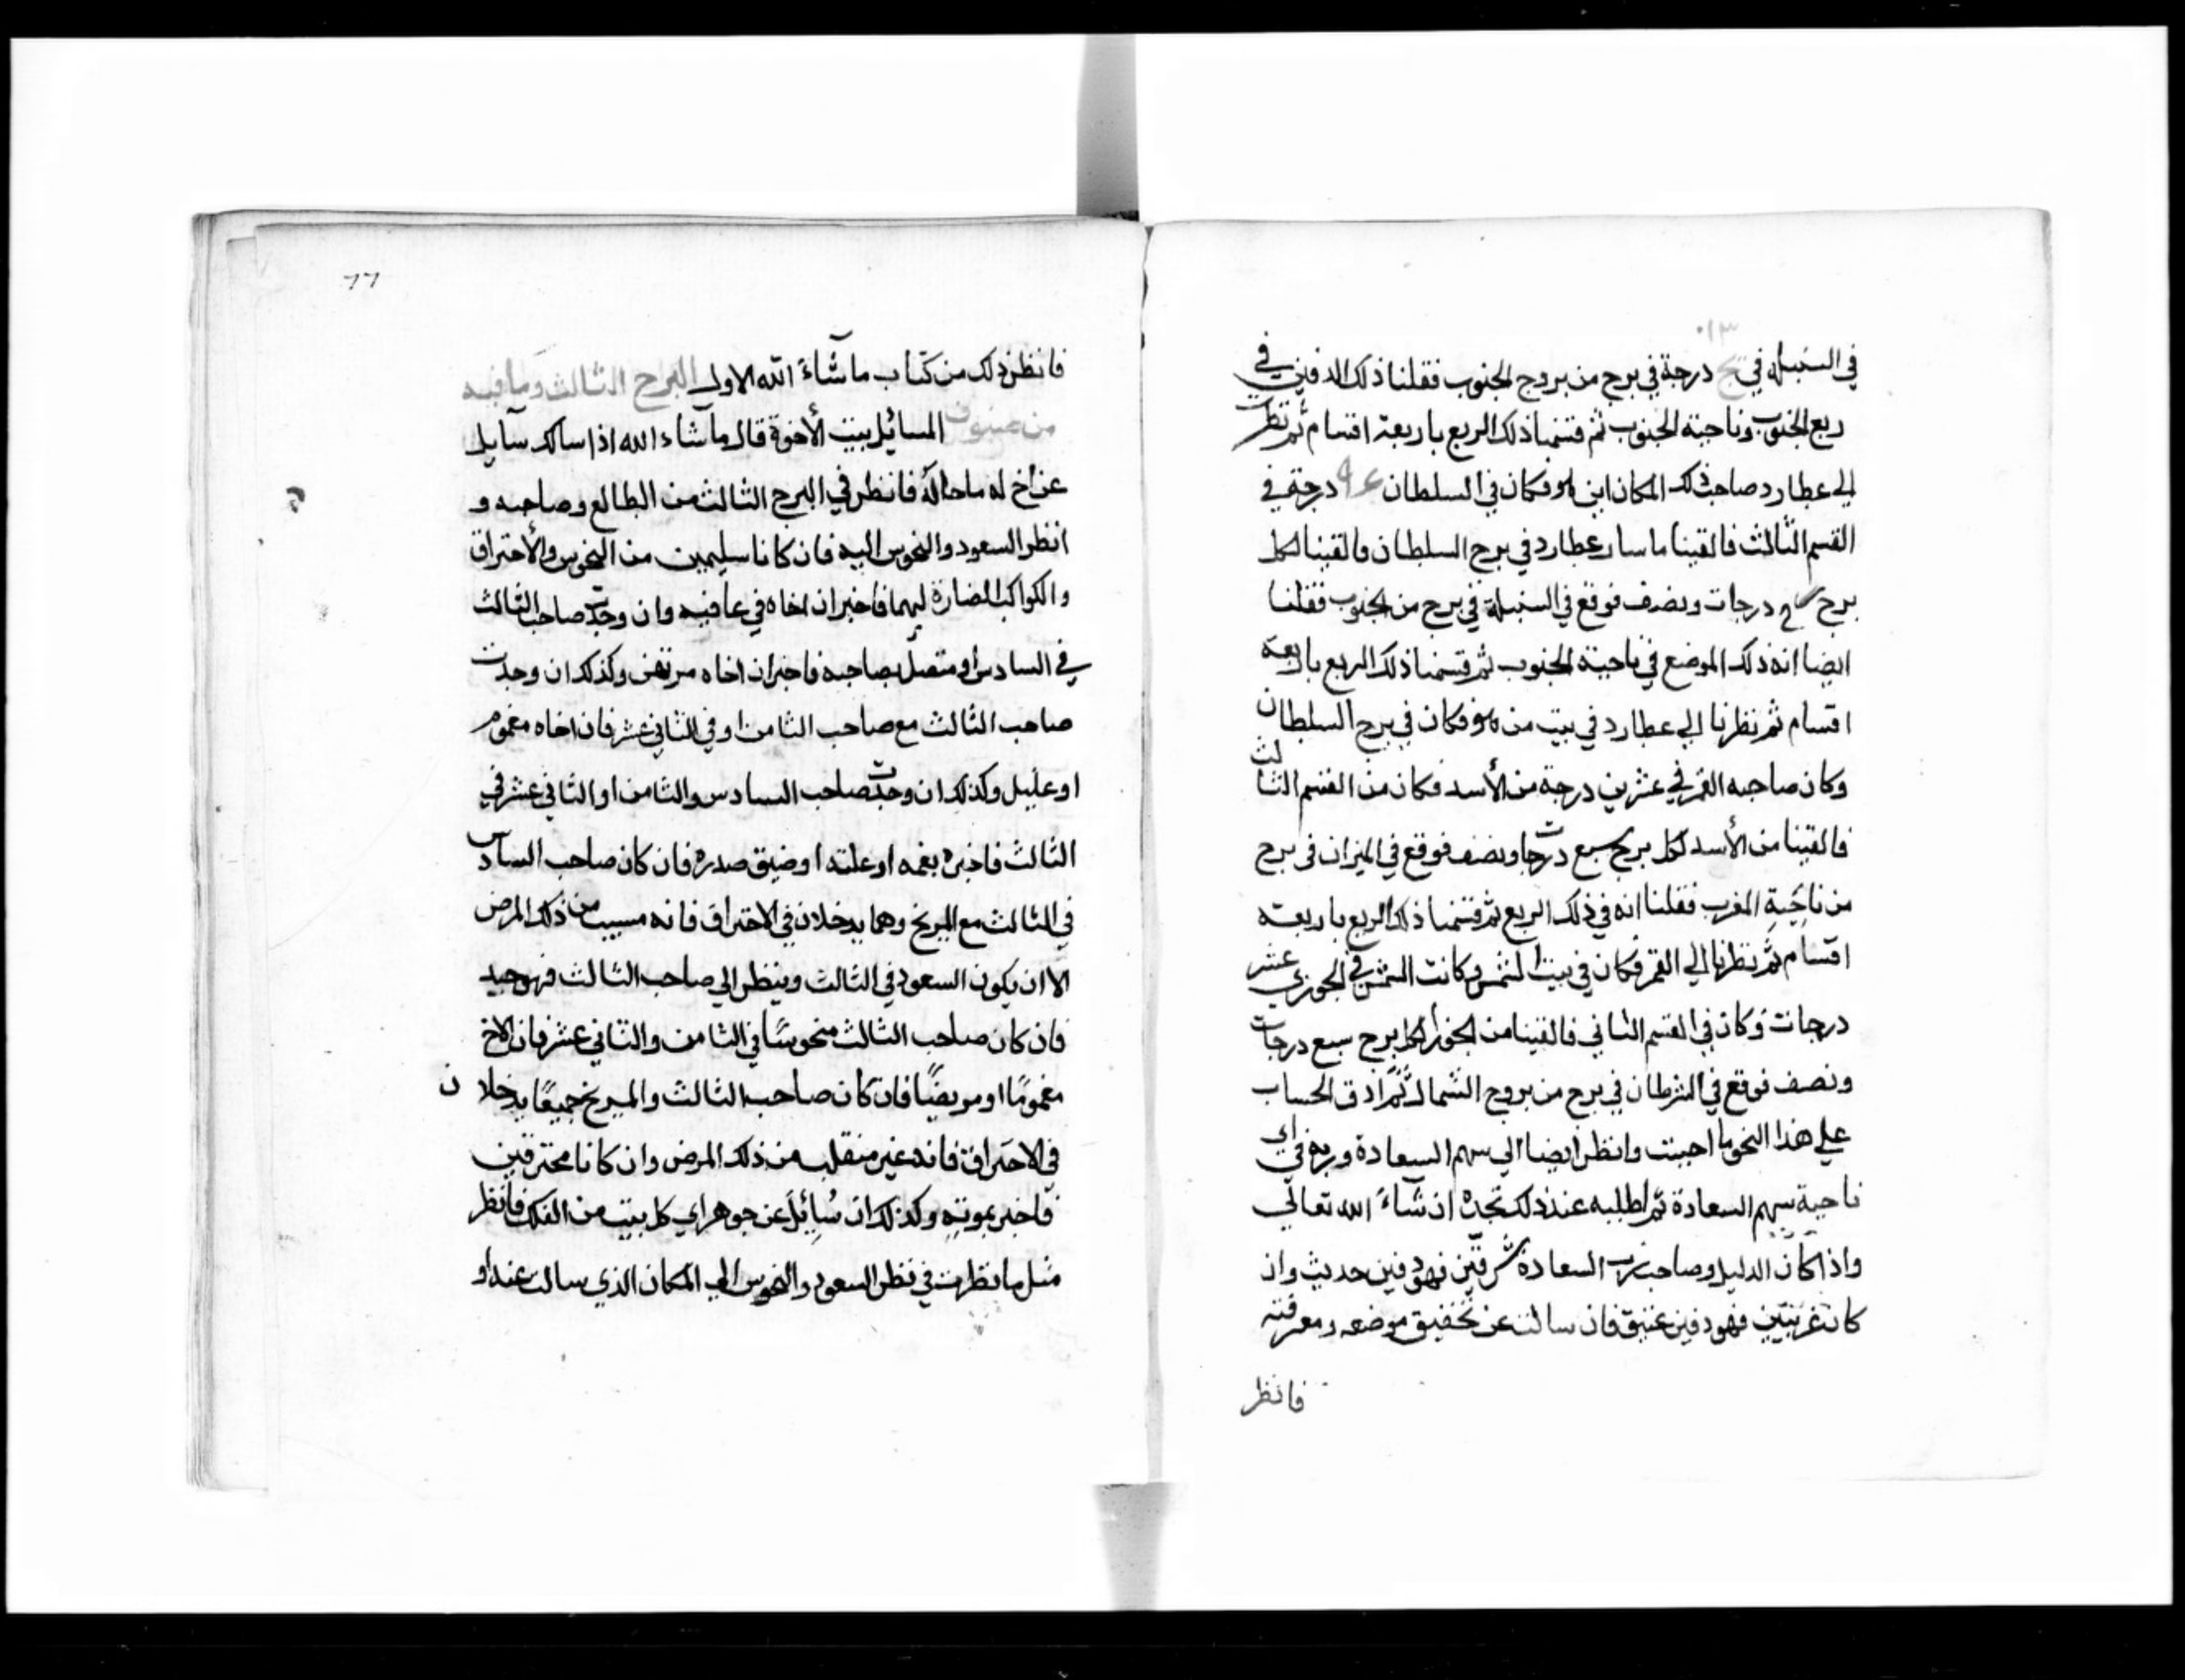 في السنبله في يج درجة في برج من بروج الجنوب فقلنا ذلك الدفين في
ربع الجنوب وناحية الجنوب ثم قسمنا ذلك الربع باربعة اقسام ثم نظرت
الي عطارد صاحب ذلك المكان اين هو فكان في السلطان درجة في
القسم الثالث فالقينا ما سار عطارد في برج السلطان فالقينا لكل
برج درجات ونصف فوقع في السنبلة في برج من الجنوب فقلنا
ايضا انه ذلك الموضع في ناحية الجنوب ثم قسمنا ذلك الربع باربعة
اقسام ثم نظرنا الي عطارد في بيت من هو فكان في برج السلطان
وكان صاحبه القمر في عشرين درجة من الأسد فكان من القسم الثالث
فالقينا من الأسد لكل برج سبع درجات ونصف فوقع في الميزان في برج
من ناحية المغرب فقلنا انه في ذلك الربع ثم قسمنا ذلك الربع باربعة
اقسام ثم نظرنا الي القمر فكان في بيت الشمس وكانت الشمس في الجوزي عشر
درجات وكان في القسم الثاني فالقينا من الجوزا لكل برج سبع درجات
ونصف فوقع في الشرطان في برج من بروج الشمال ثم ادق الحساب
علي هذا النحو ما احببت وانظر ايضا الي سهم السعادة وربه في اي
ناحية سهم السعادة ثم اطلبه عند ذلك تجده ان شاء الله تعالي
واذا كان الدليل وصاحب السعادة شرقيين فهو دفين حديث وان
كان غربيين فهو دفين عتيق فان سالت عن تحقيق موضعه ومعرفته
فانظر
٦٦
فانظر ذلك من كتاب ما شاء الله الاول البرج الثالث وما فيه
من عيون المسائل بيت الأخوة قال ما شاء الله اذا سالك سآيل
عن اخ له ما حاله فانظر في البرج الثالث من الطالع وصاحبه و
انظر السعود والنحوس اليه فان كانا سليمين من النحوس والأحتراق
والكواكب المضارة لهما فاخبر ان اخاه في عافيه وان وجدت صاحب الثالث
في السادس او متصل بصاحبه فاخبر ان اخاه مريض وكذلك ان وجدت
صاحب الثالث مع صاحب الثامن او في الثاني عشر فان اخاه مغموم
او عليل وكذلك ان وجدت صاحب السادس والثامن او الثاني عشر في
الثالث فاخبره بغمه او علته او ضيق صدره فان كان صاحب السادس
في الثالث مع المريخ وهما يدخلان في الاحتراق فانه مسيب من ذلك المرض
الا ان يكون السعود في الثالث وينظر الي صاحب الثالث فهو جيد
فان كان صاحب الثالث منحوسًا في الثامن والثاني عشر فان الاخ
مغمومًا او مريضًا فان كان صاحب الثالث والمريخ جميعًا يدخلان
في الاحتراق فانه غير منقلب من ذلك المرض وان كانا محترقين
فاخبر بموته وكذلك ان سُئِلَ عن جوهر اي كل بيت من الفلك فانظر
مثل ما نظرت في نظر السعود والنحوس الي المكان الذي سالت عنه او